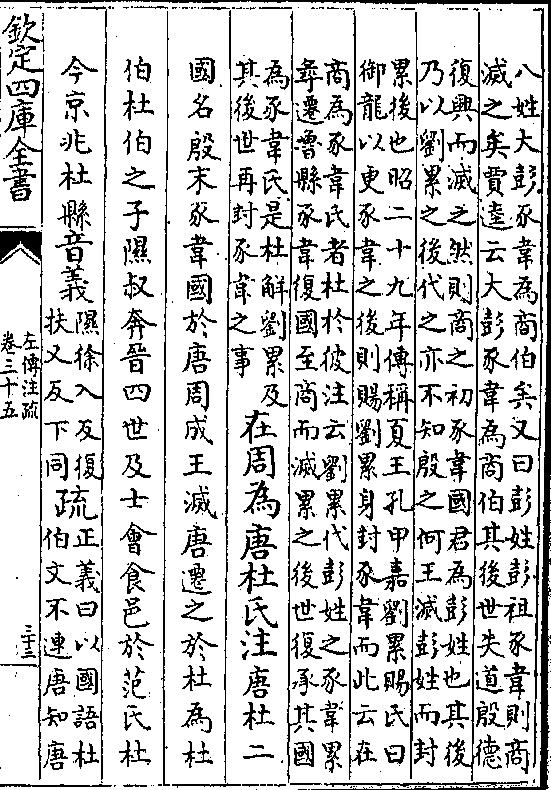 八姓大彭豕韋為商伯矣又曰彭姓彭祖豕韋則商
滅之矣賈逵云大彭豕韋為商伯其後世失道殷德
復興而滅之然則商之初豕韋國君為彭姓也其後
乃以劉累之後代之亦不知殷之何王滅彭姓而封
累後也昭二十九年傳稱夏王孔甲嘉劉累賜氏曰
御龍以更豕韋之後則賜劉累身封豕韋而此云在
商為豕韋氏者杜於彼注云劉累代彭姓之豕韋累
尋遷魯縣豕韋復國至商而滅累之後世復承其國
為豕韋氏是杜解劉累及
其後世再封豕韋之事
在周為唐杜氏注唐杜二
國名殷末豕韋國於唐周成王滅唐遷之於杜為杜
伯杜伯之子隰叔奔晉四世及士會食邑於范氏杜
今京兆杜縣音義
隰徐入反復
扶又反下同
疏
正義曰以國語杜
伯文不連唐知唐
欽定四庫全書
左傳注疏
卷三十五
三十三